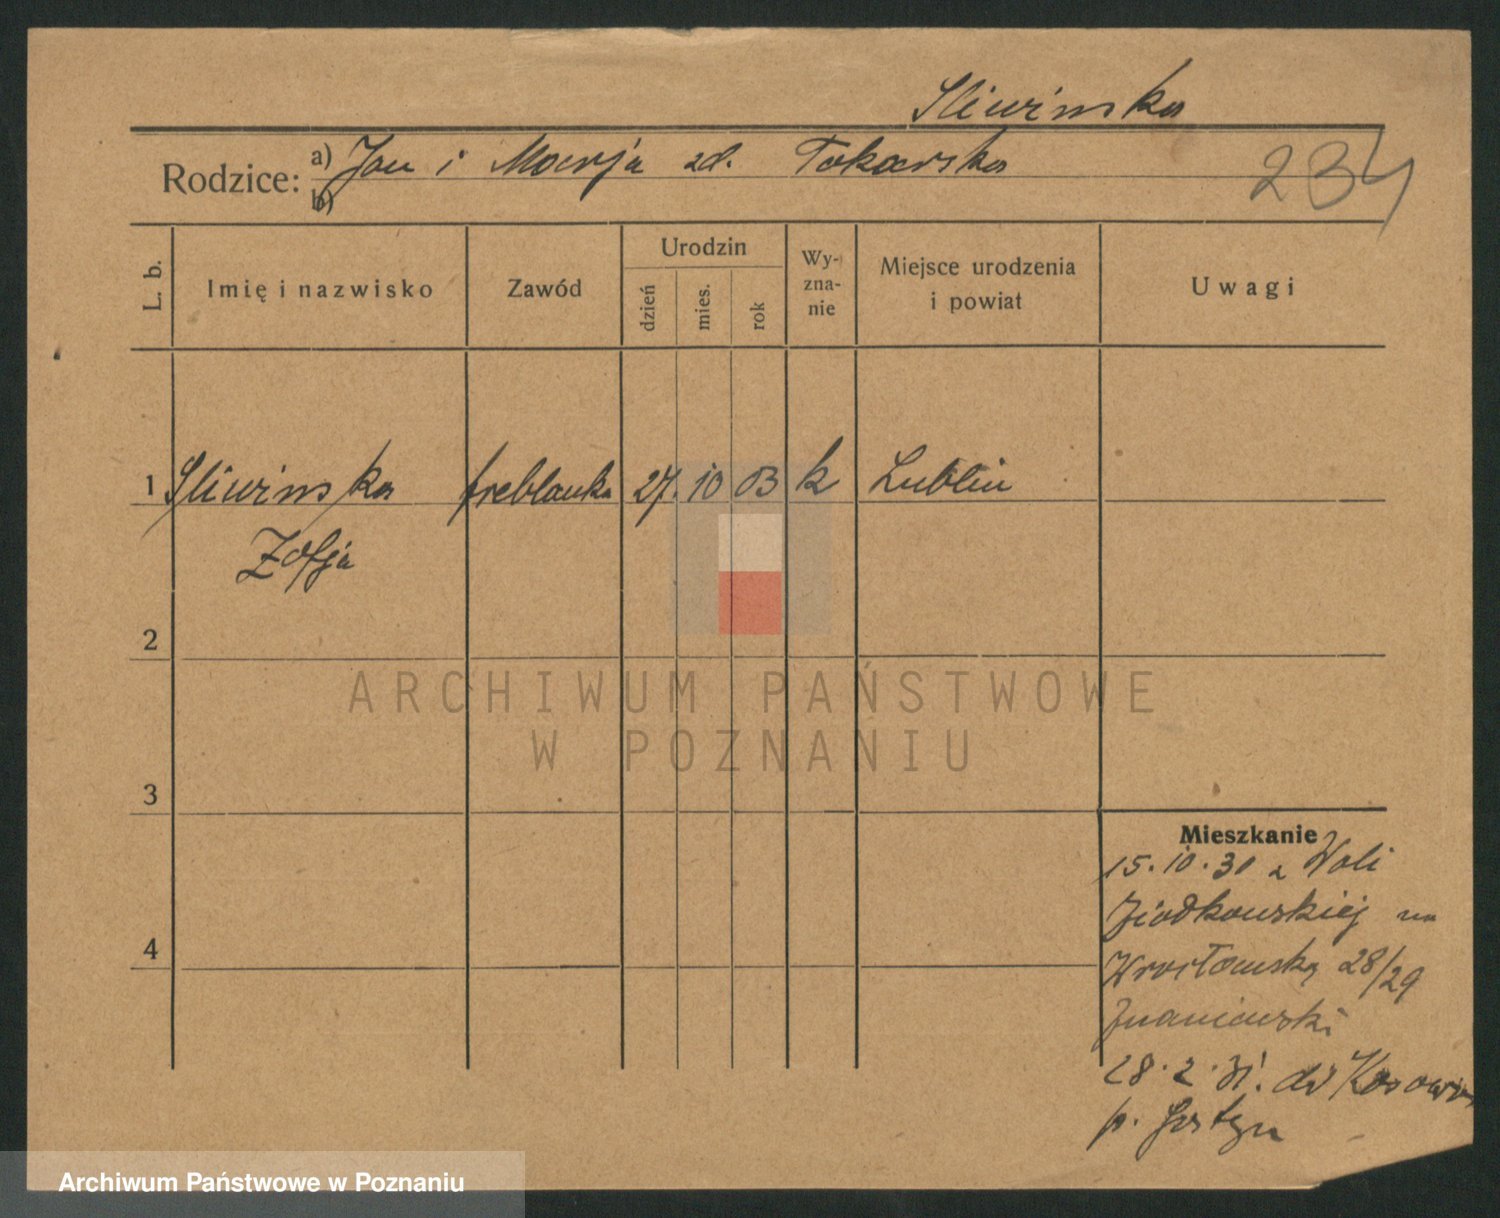 Sliwinska
Rodzice: a) Jan i Marja zd. Tokarska
b)
234
L. b.
Imię i nazwisko
Zawód
Urodzin
dzień
mies.
rok
Wy-
zna-
nie
Miejsce urodzenia
i powiat
Uwagi
1 Sliwinska freblanka 27. 10 03 k Lublin
Zofja
2
3
4
ARCHIWUM PAŃSTWOWE
W POZNANIU
Mieszkanie
15.10.30 z Woli
na
Wrocławską 28/29
28.2.31. do
p. Gostyn
Archiwum Państwowe w Poznaniu